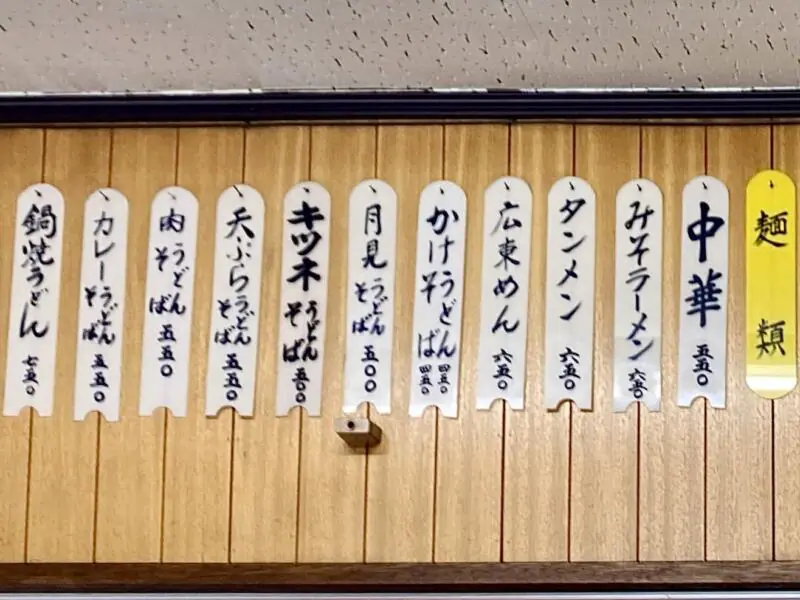 麺類
中華 五五〇
みそラーメン 六五〇
タンメン 六五〇
広東めん 六五〇
かけうどんそば 四五〇 四五〇
月見うどんそば 五〇〇
キツネうどんそば 五〇〇
天ぷらうどんそば 五五〇
肉うどんそば 五五〇
カレーうどんそば 五五〇
鍋焼うどん 七五〇